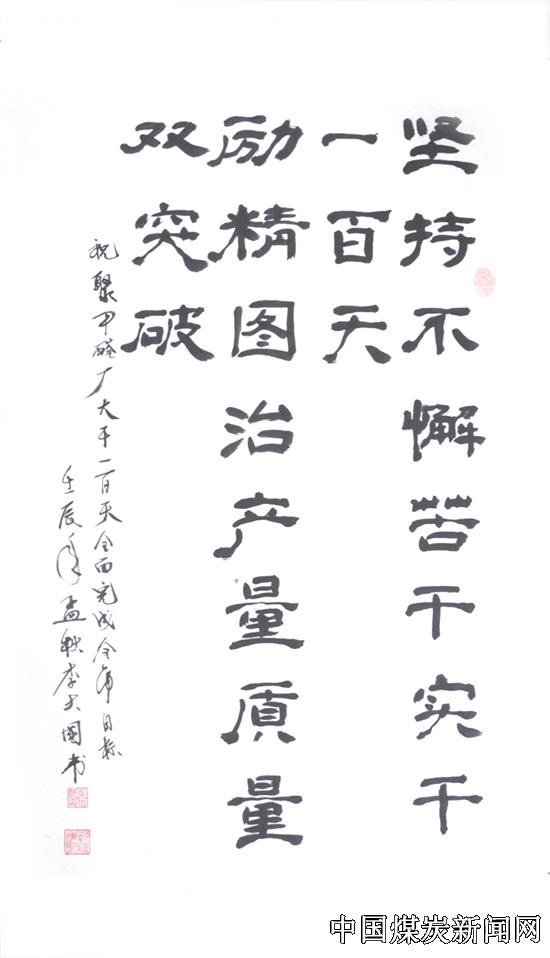 坚持不懈苦干实干
一百天
励精图治产量质量
双突破
祝聚甲醛厂大干一百天全面完成全年目标
壬辰年孟秋李大国书
中国煤炭新闻网